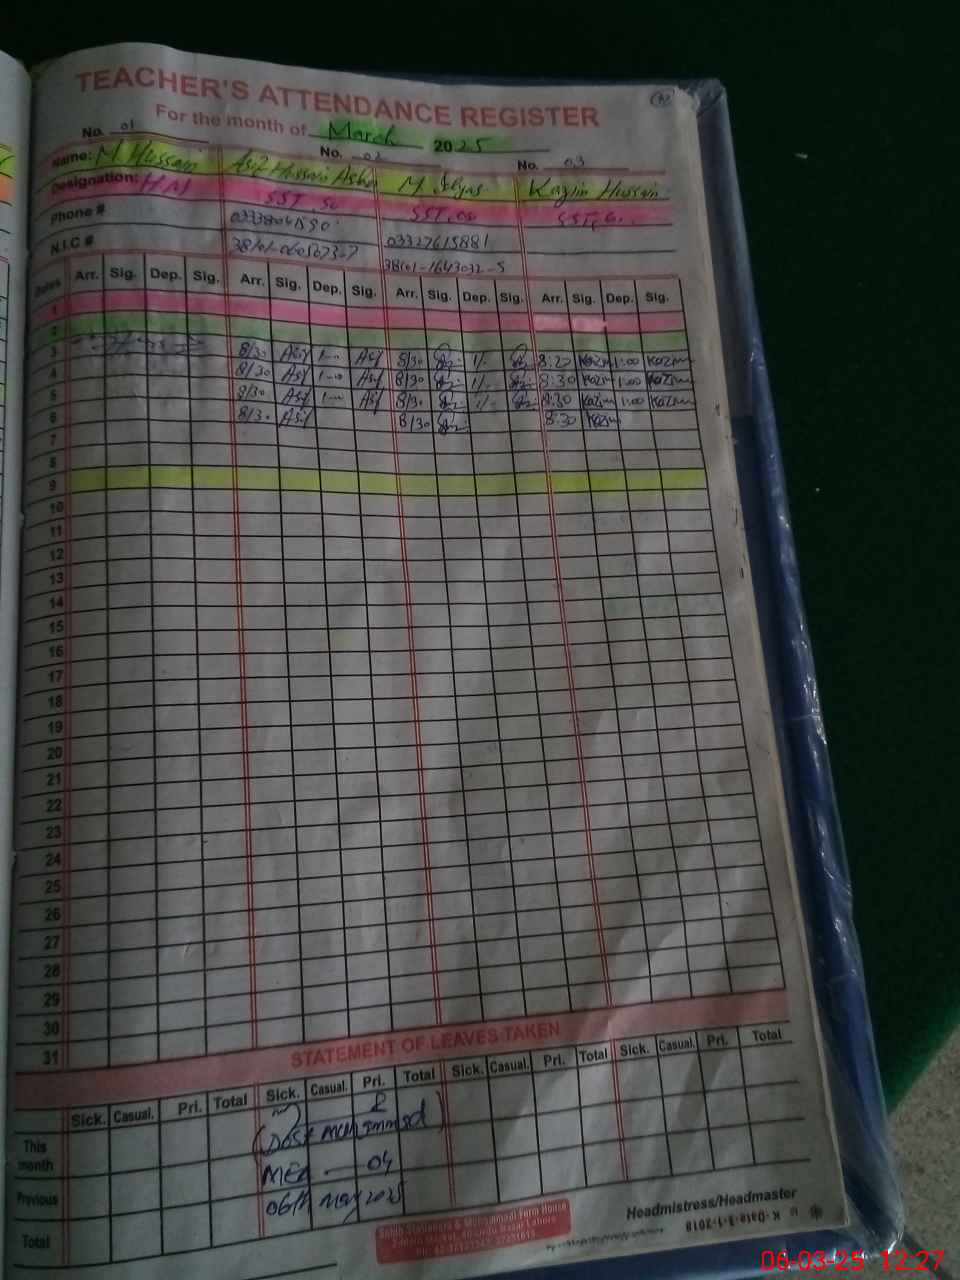 TEACHER'S ATTENDANCE REGISTER
For the month of March 2025
No. 01 No. 02 No. 03
Name: M Hussain Asif Hussain M. Ilyas Kazim Hussain
Designation: H.M SST. SST.
Phone # 03327615881
N.I.C # 38101-1643032-5
Dates Arr. Sig. Dep. Sig. Arr. Sig. Dep. Sig. Arr. Sig. Dep. Sig. Arr. Sig. Dep. Sig.
1
2
3 8/30 Asif 1-- Asif 8/30 1/- 8:20 Kazim 1:00 Kazim
4 8/30 Asif 1-- Asif 8/30 1/- 8:30 Kazim 1:00 Kazim
5 8/30 Asif 1-- Asif 8/30 1/- 8:30 Kazim 1:00 Kazim
6 8/30 Asif 8/30 8:30 Kazim
7
8
9
10
11
12
13
14
15
16
17
18
19
20
21
22
23
24
25
26
27
28
29
30
31
STATEMENT OF LEAVES TAKEN
Sick. Casual. Pri. Total Sick. Casual. Pri. Total Sick. Casual. Pri. Total Sick. Casual. Pri. Total
This month
Previous MEA -- 04
Total 06th 2025
Headmistress/Headmaster
06-03-25 12:27